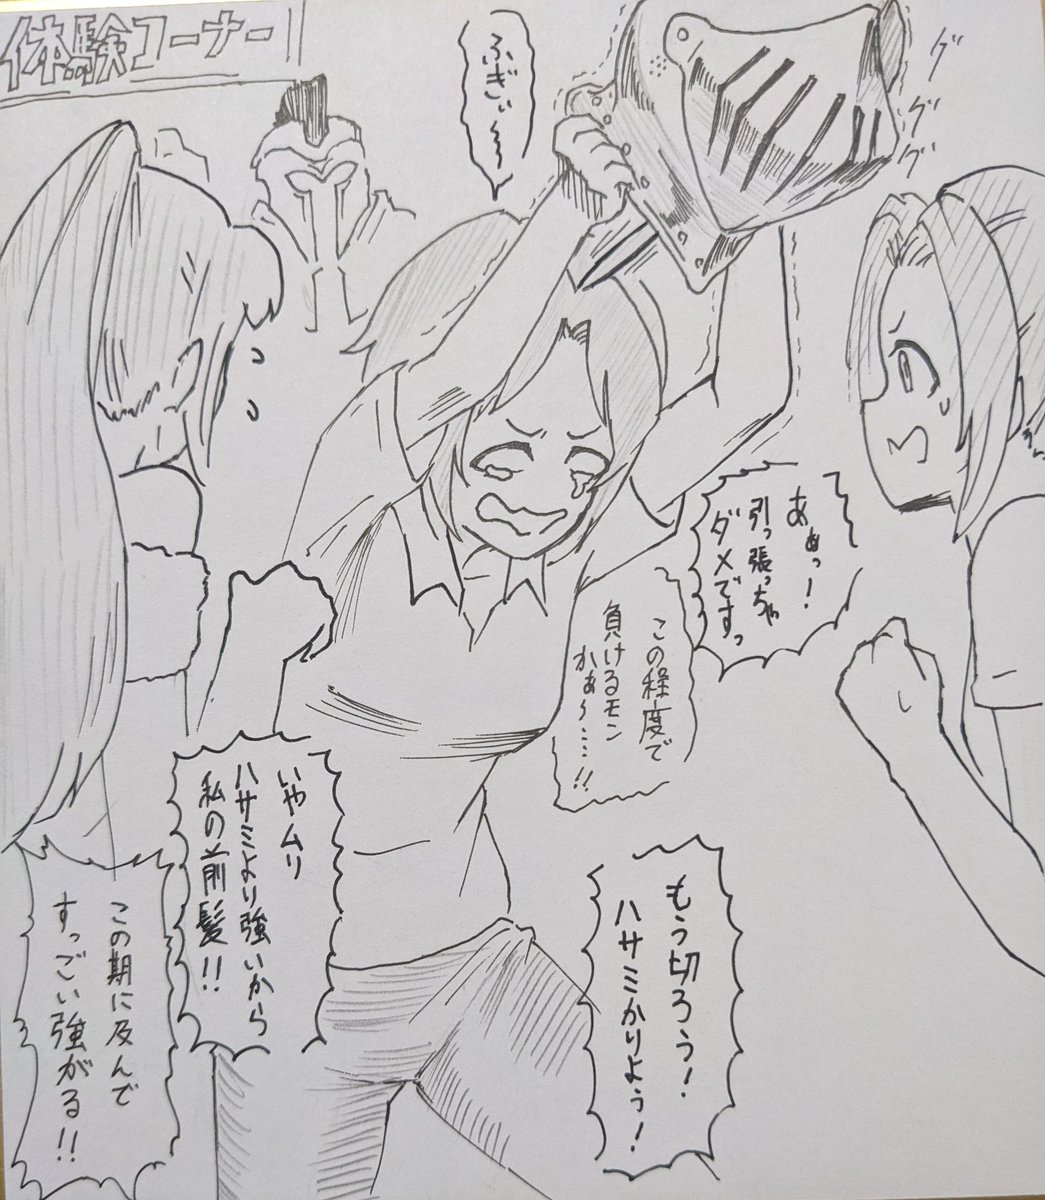 体験コーナー
ふぎぃ〜〜
グ
グ
グ
グ
あぁっ!
引っ張っちゃ
ダメですっ
この程度で
負けるモン
かぁ〜……!!
もう切ろう!
ハサミかりよう!
いやムリ
ハサミより強いから
私の前髪!!
この期に及んで
すっごい強がる!!